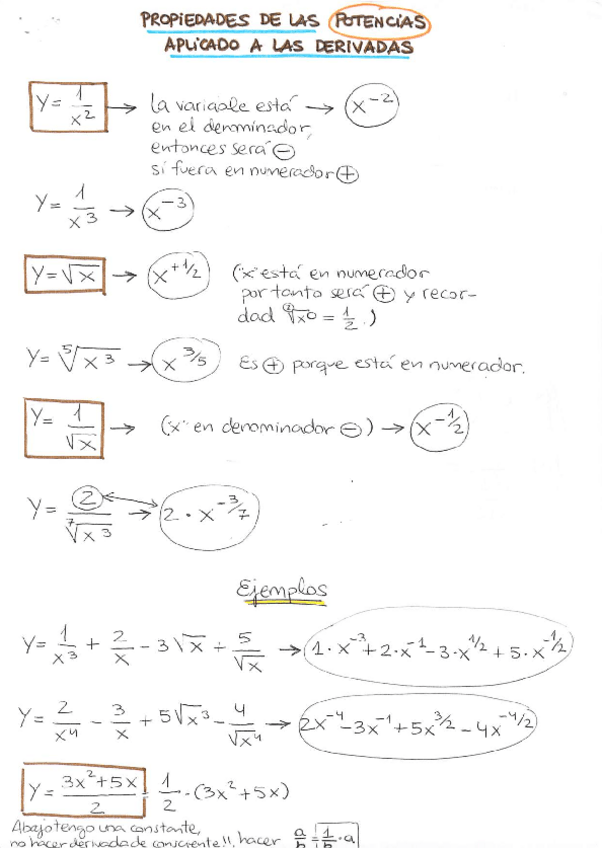 PROPIEDADES DE LAS POTENCIAS
APLICADO A LAS DERIVADAS
Y = 1/x² → La variable está → x⁻²
en el denominador,
entonces será ⊖
si fuera en numerador ⊕
Y = 1/x³ → x⁻³
Y = √x → x^(+1/2) ("x" está en numerador
por tanto será ⊕ y recor-
dad = 1/2.)
Y = ⁵√x³ → x^(3/5) Es ⊕ porque está en numerador.
Y = 1/√x → ("x" en denominador ⊖) → x^(-1/2)
Y = 2/⁷√x³ → 2·x^(-3/7)
Ejemplos
Y = 1/x³ + 2/x - 3√x + 5/√x → 1·x⁻³ + 2·x⁻¹ - 3·x^(1/2) + 5·x^(-1/2)
Y = 2/x⁴ - 3/x + 5√x³ - 4/√x⁴ → 2x⁻⁴ - 3x⁻¹ + 5x^(3/2) - 4x^(-4/2)
Y = (3x²+5x)/2 = 1/2·(3x²+5x)
Abajo tengo una constante,
no hacer derivada de!!, hacer a/b = 1/b·a